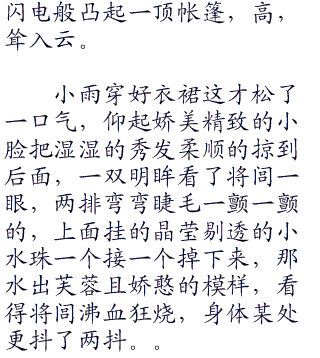 闪电般凸起一顶帐篷，高，
耸入云。
小雨穿好衣裙这才松了
一口气，仰起娇美精致的小
脸把湿湿的秀发柔顺的掠到
后面，一双明眸看了将闾一
眼，两排弯弯睫毛一颤一颤
的，上面挂的晶莹剔透的小
水珠一个接一个掉下来，那
水出芙蓉且娇憨的模样，看
得将闾沸血狂烧，身体某处
更抖了两抖。。